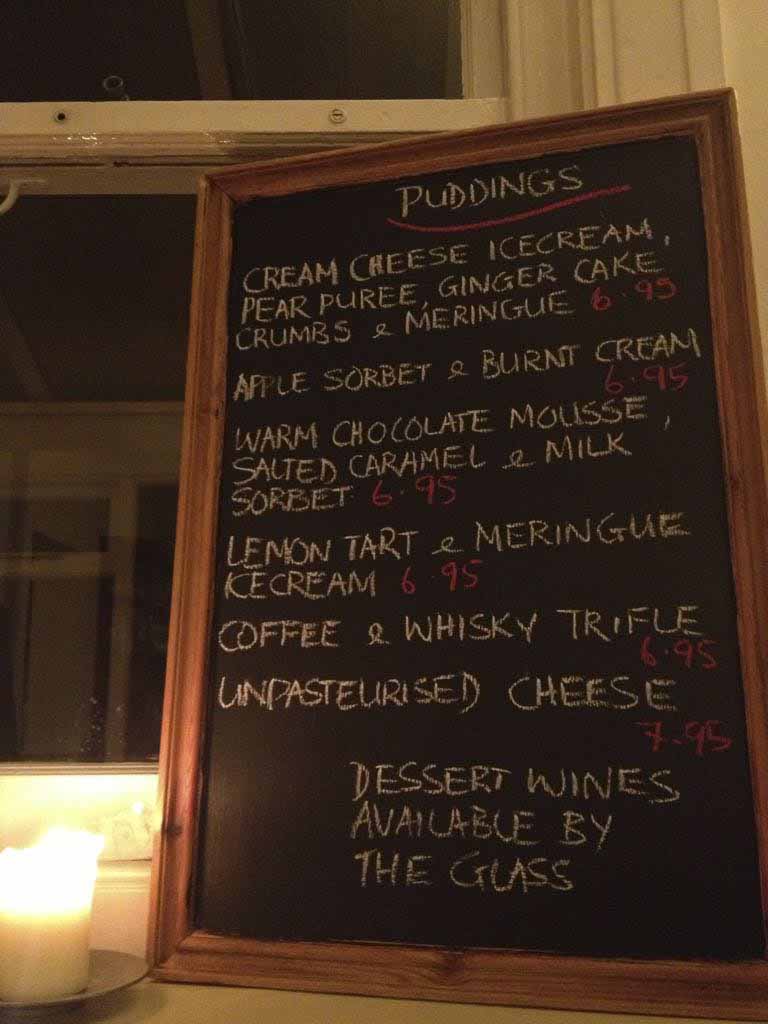 PUDDINGS
CREAM CHEESE ICECREAM,
PEAR PUREE, GINGER CAKE
CRUMBS & MERINGUE 6.95
APPLE SORBET & BURNT CREAM
6.95
WARM CHOCOLATE MOUSSE,
SALTED CARAMEL & MILK
SORBET 6.95
LEMON TART & MERINGUE
ICECREAM 6.95
COFFEE & WHISKY TRIFLE
6.95
UNPASTEURISED CHEESE
7.95
DESSERT WINES
AVAILABLE BY
THE GLASS